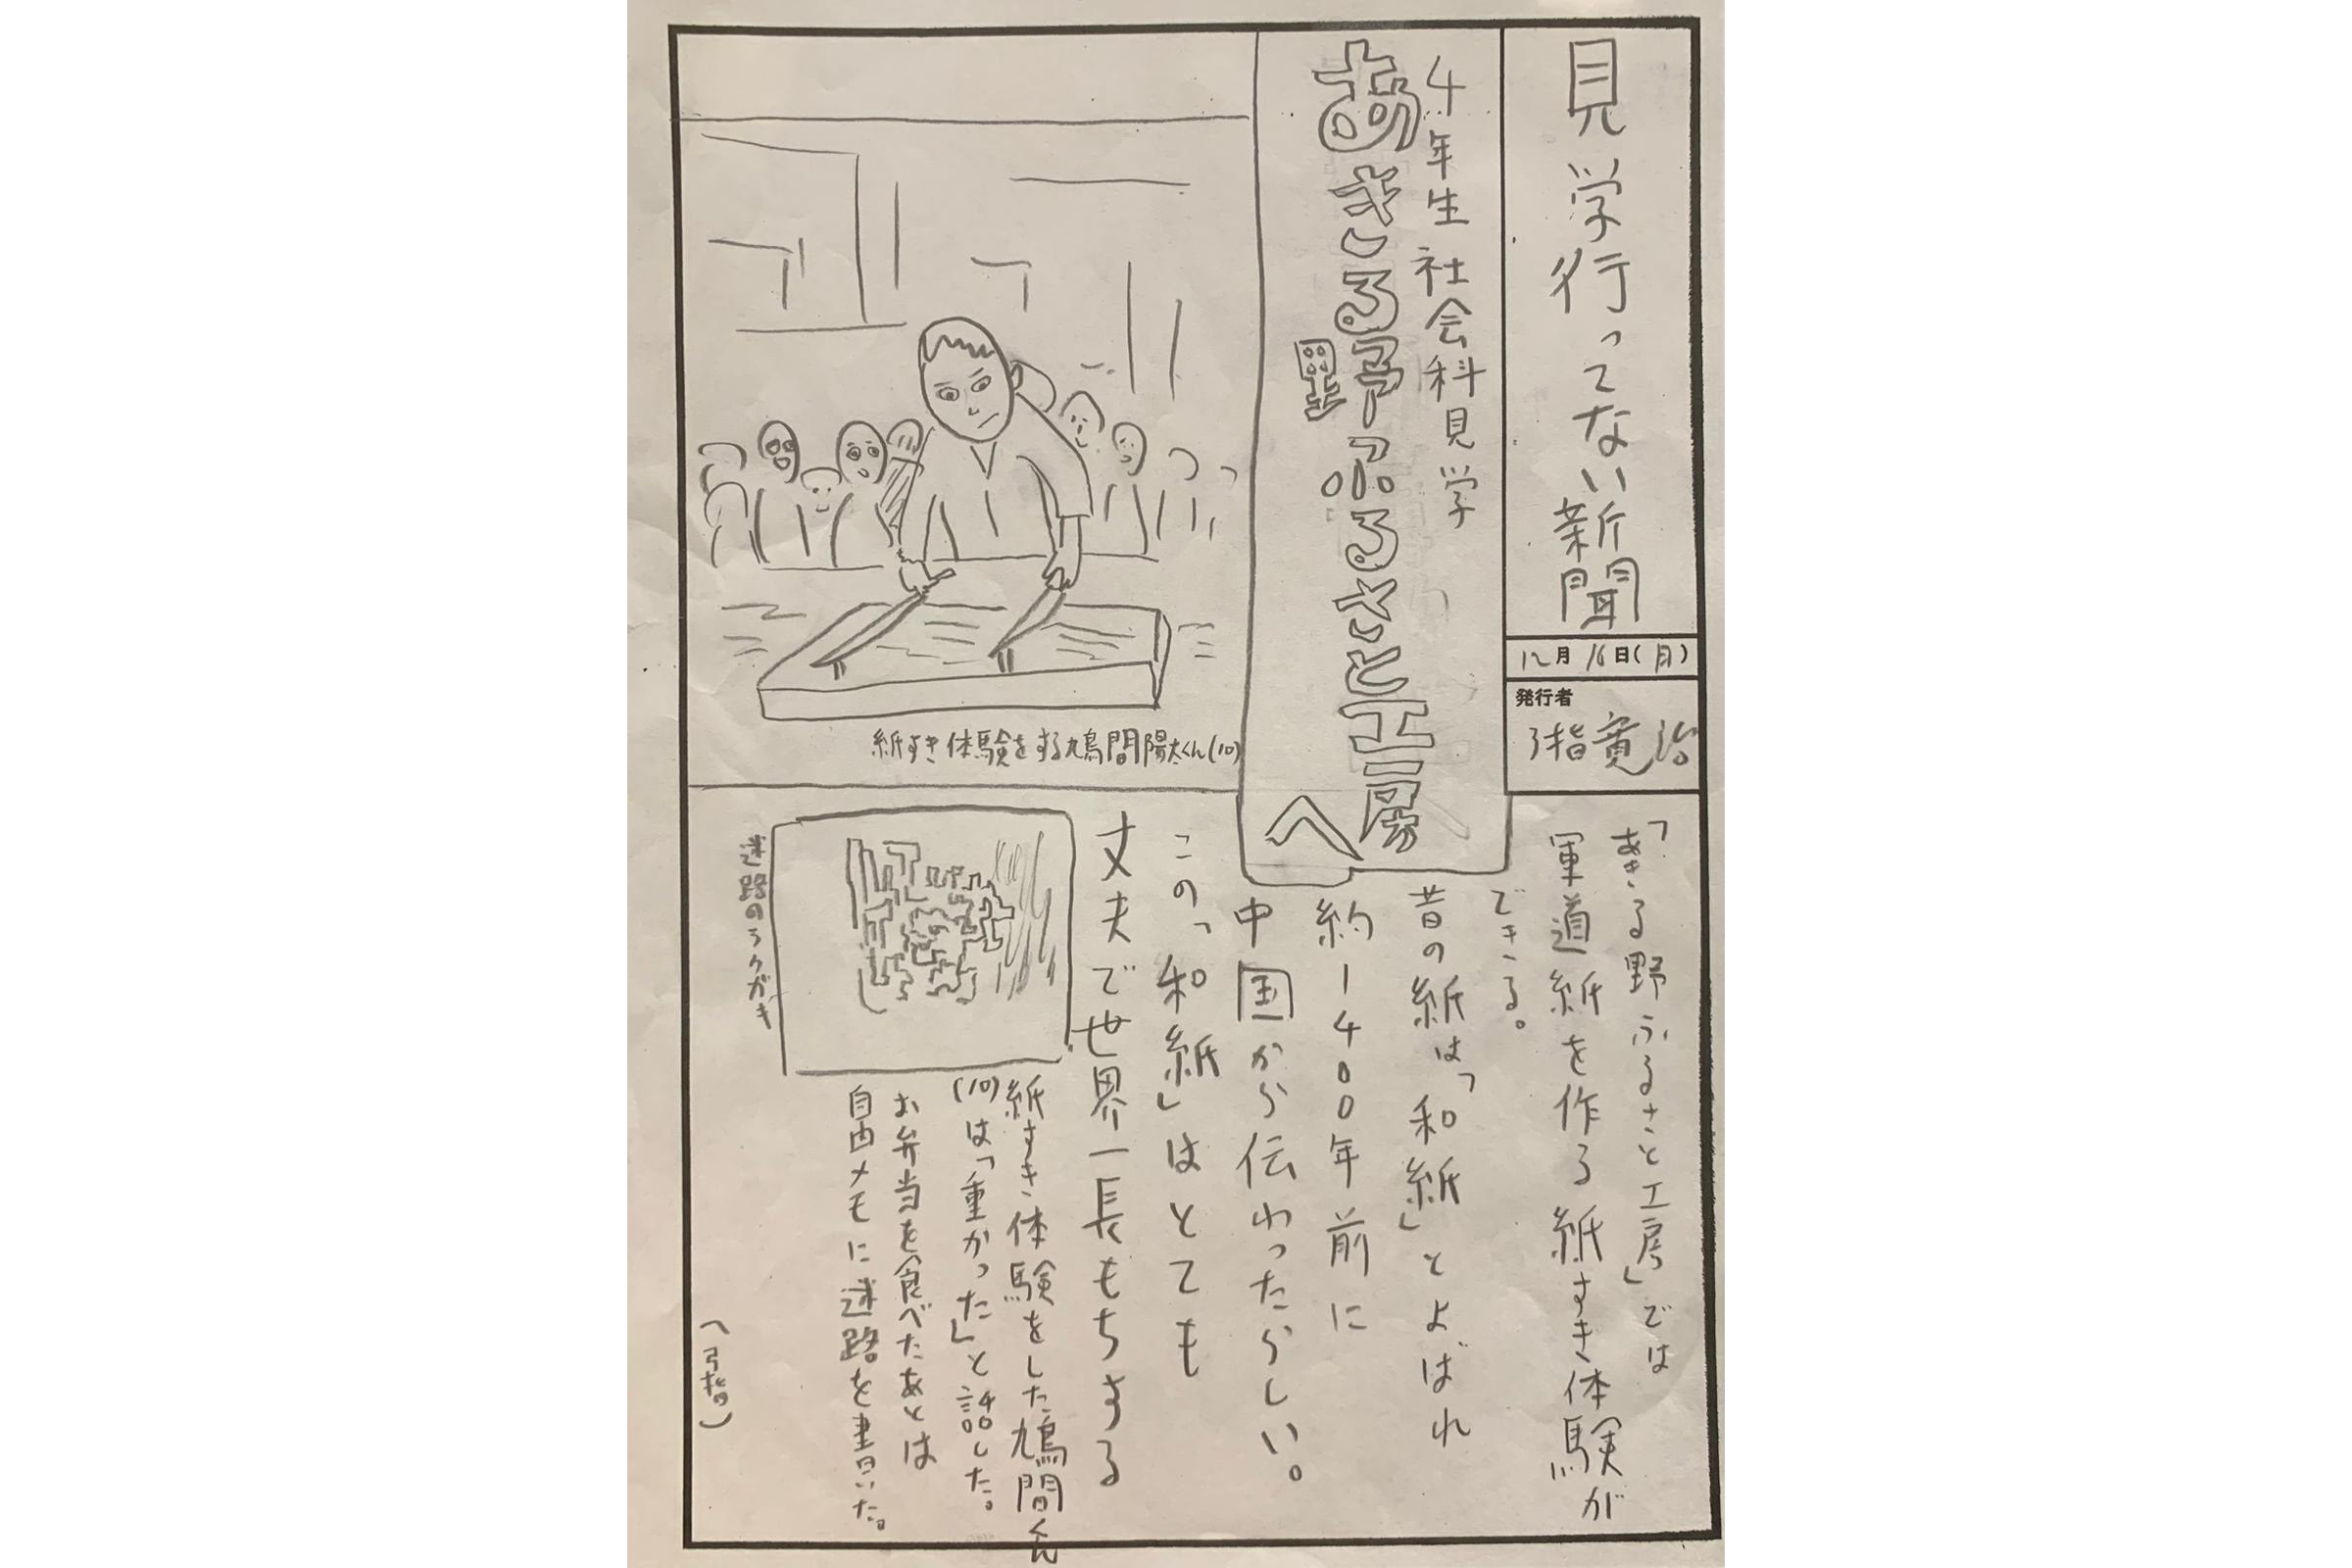 見学行ってない新聞
12月16日(月)
発行者
弓指寛治
4年生社会科見学
あきる野ふるさと工房
へ
紙すき体験をする鳩間陽太くん(10)
「あきる野ふるさと工房」では
軍道紙を作る紙すき体験が
できる。
昔の紙は「和紙」とよばれ
約1400年前に
中国から伝わったらしい。
この「和紙」はとても
丈夫で世界一長もちする
紙すき体験をした鳩間くん
(10)は「重かった」と話した。
お弁当を食べたあとは
自由メモに迷路を書いた。
迷路のラクガキ
(弓指)